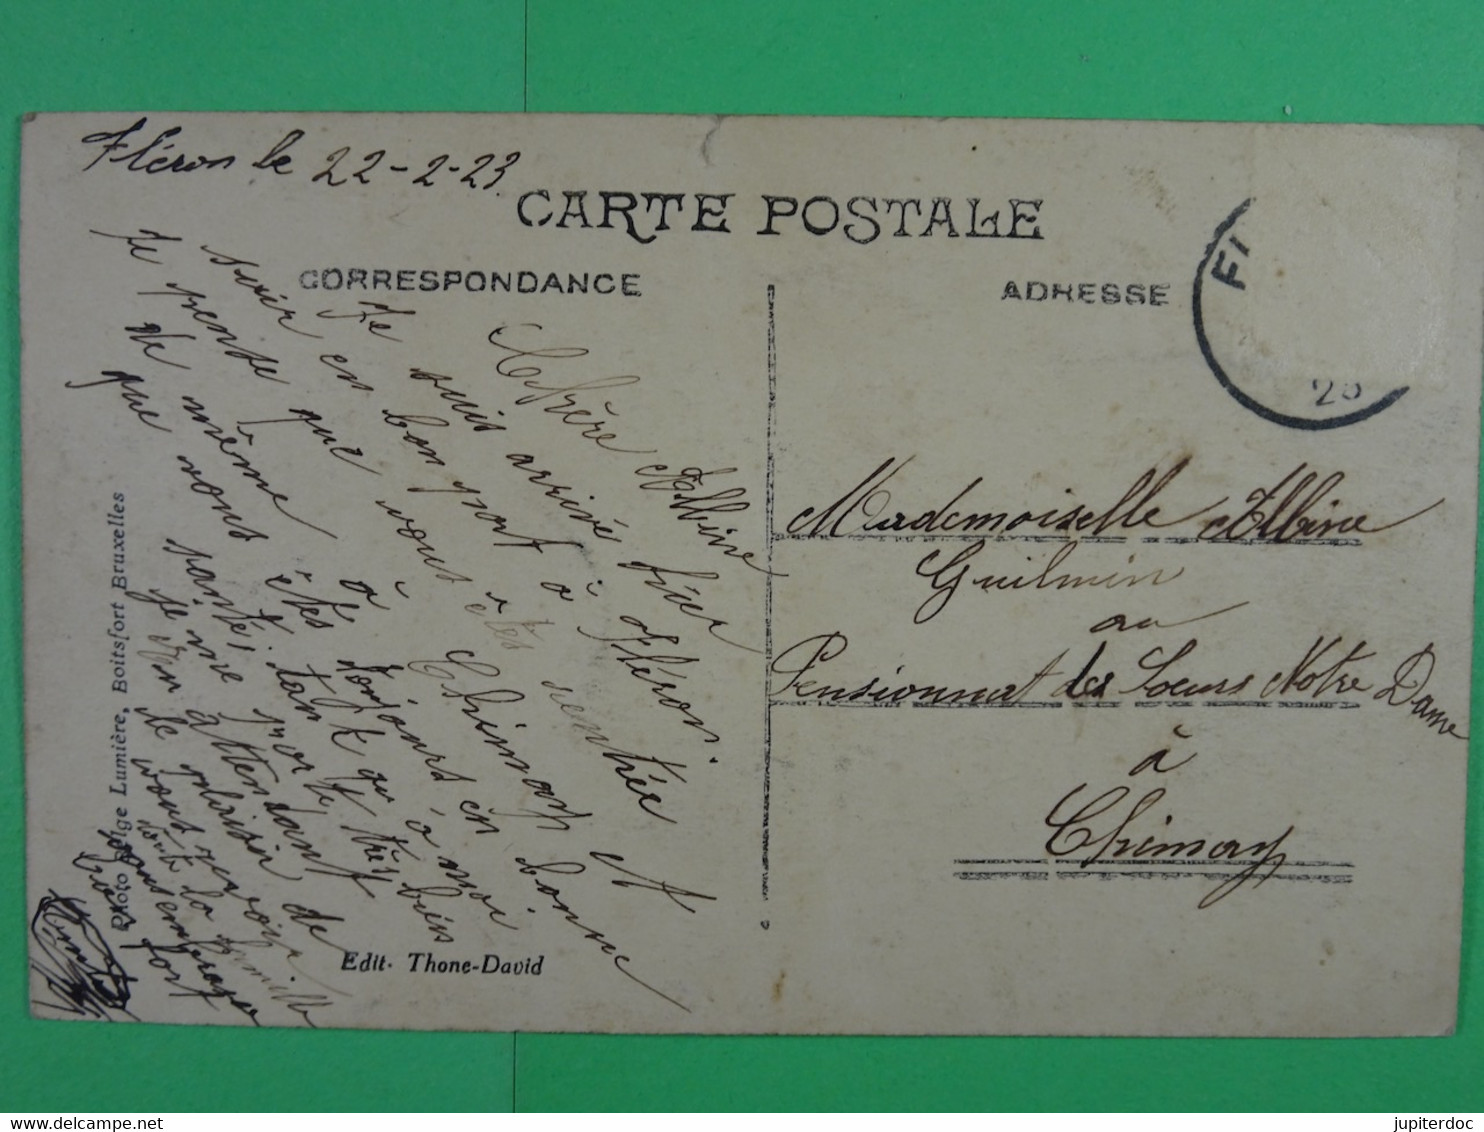 Fléron le 22-2-23.
CARTE POSTALE
CORRESPONDANCE
ADRESSE
Chère Albine
Je suis arrivé hier
soir en bon port à Fléron.
Je pense que vous êtes rentrée
de même à Chimay et
que vous êtes toujours en bonne
santé, tant qu'à moi
je me porte très bien
en attendant de
le plaisir de
vous revoir
toute la famille
vous embrasse
bien fort
Photo Belge Lumière, Boitsfort Bruxelles
Edit. Thone-David
FL
23
Mademoiselle Albine
Guilmin
au
Pensionnat des Soeurs Notre Dame
à
Chimay
jupiterdoc
delcampe.net